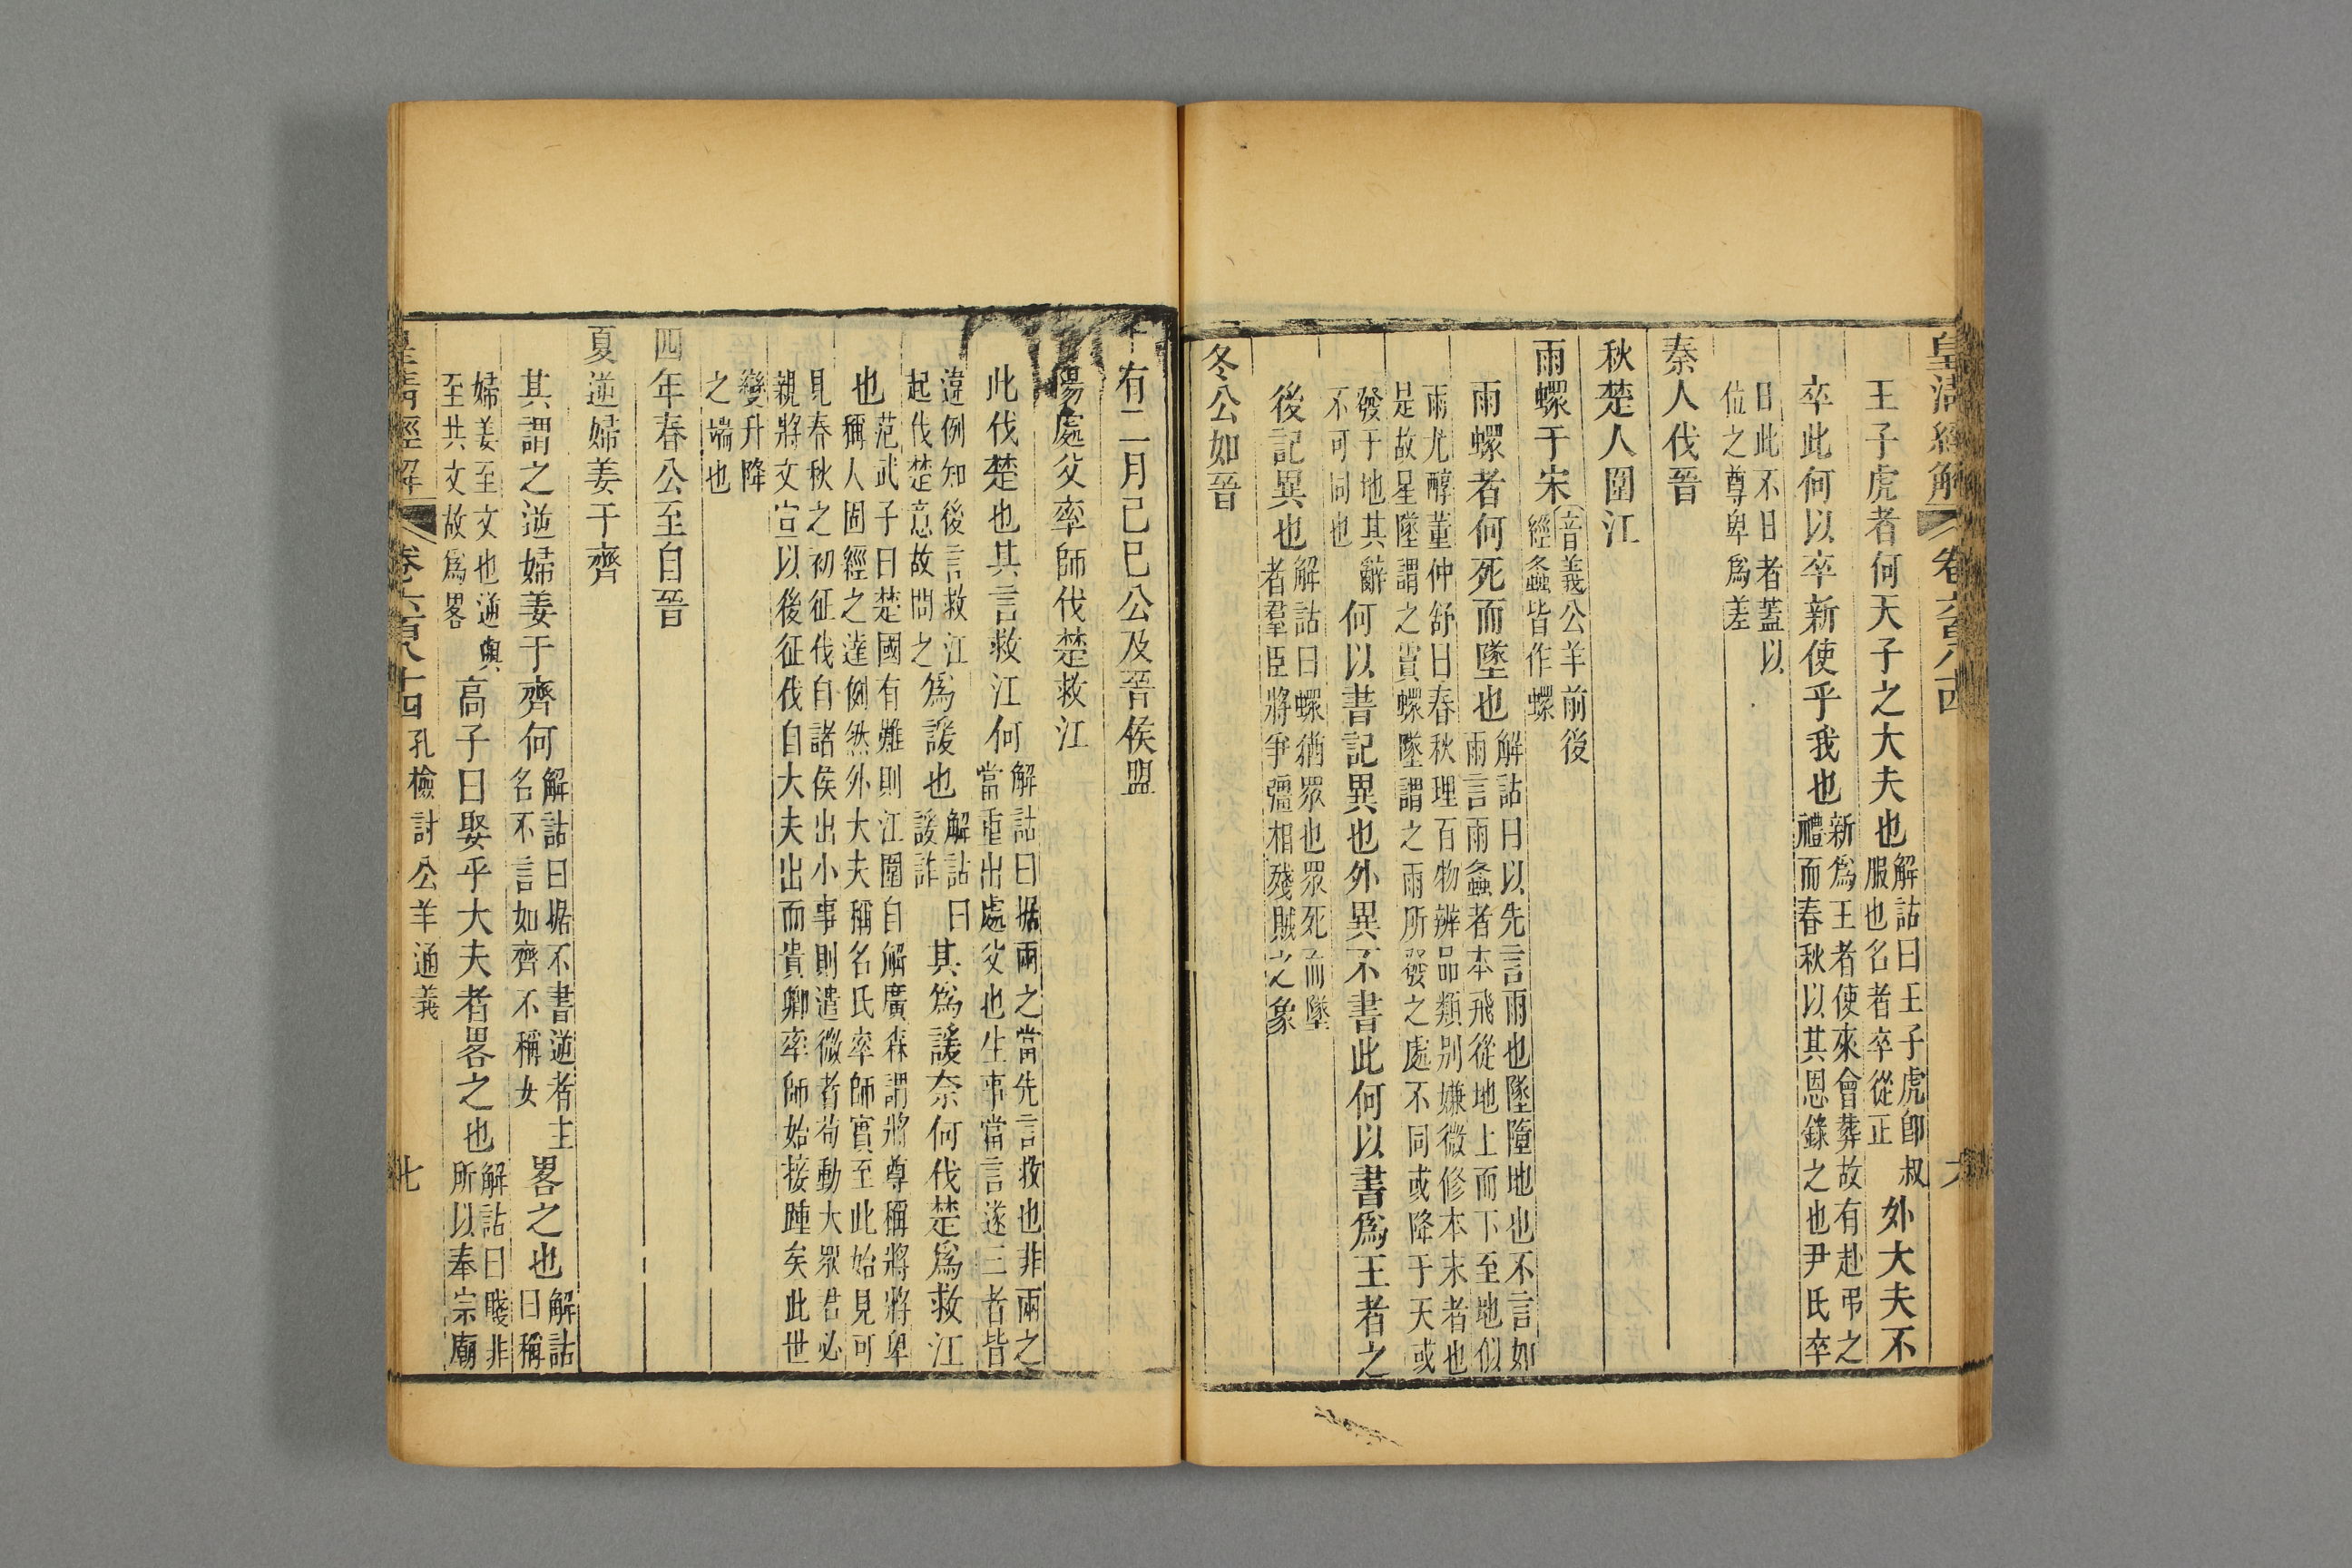 皇清經解 卷六百八十四 六
王子虎者何天子之大夫也解詁曰王子虎卽叔
服也名者卒從正外大夫不
卒此何以卒新使乎我也新爲王者使來會葬故有赴弔之
禮而春秋以其恩錄之也尹氏卒
日此不日者蓋以
位之尊卑爲差
秦人伐晉
秋楚人圍江
雨螺于宋音義公羊前後
經螽皆作螺
雨螺者何死而墜也解詁曰以先言雨也墜隨地也不言如
雨言雨螽者本飛從地上而下至地似
雨尤醇董仲舒曰春秋理百物辨品類別嫌微修本末者也
是故星墜謂之霣螺墜謂之雨所發之處不同或降于天或
發于地其辭
不可同也何以書記異也外異不書此何以書爲王者之
後記異也解詁曰螺猶眾也眾死而墜
者羣臣將爭彊相殘賊之象
冬公如晉
十有二月己巳公及晉侯盟
陽處父率師伐楚救江
此伐楚也其言救江何解詁曰据兩之當先言救也非兩之
當重出處父也生事當言遂三者皆
違例知後言救江
起伐楚意故問之爲諼也解詁曰
諼詐其爲諼奈何伐楚爲救江
也范武子曰楚國有難則江圍自解廣森謂將尊稱將將卑
稱人固經之達例然外大夫稱名氏率師實至此始見可
見春秋之初征伐自諸侯出小事則遣微者苟動大眾君必
親將文宣以後征伐自大夫出而貴卿率師始接踵矣此世
變升降
之端也
四年春公至自晉
夏逆婦姜于齊
其謂之逆婦姜于齊何解詁曰据不書逆者主
名不言如齊不稱女畧之也解詁
曰稱
婦姜至文也逆與
至共文故爲畧高子曰娶乎大夫者畧之也解詁曰賤非
所以奉宗廟
皇清經解 卷六百八十四 孔檢討公羊通義 七